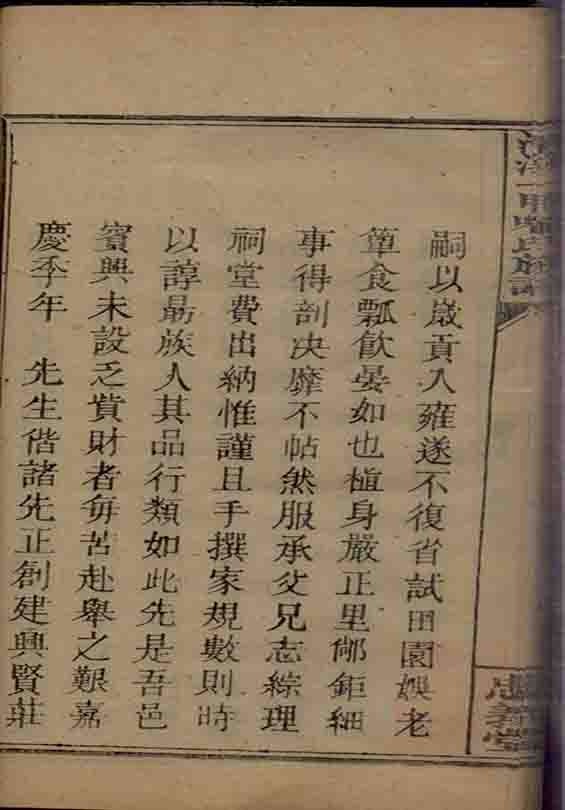 嗣以歲貢入雍遂不復省試田園娛老
簞食瓢飲晏如也植身嚴正里鄰鉅細
事得剖决靡不帖然服承父兄志綜理
祠堂費出納惟謹且手撰家規數則時
以諄勗族人其品行類如此先是吾邑
賓興未設乏貲財者每苦赴舉之艱嘉
慶季年　先生偕諸先正創建興賢莊
忠義堂